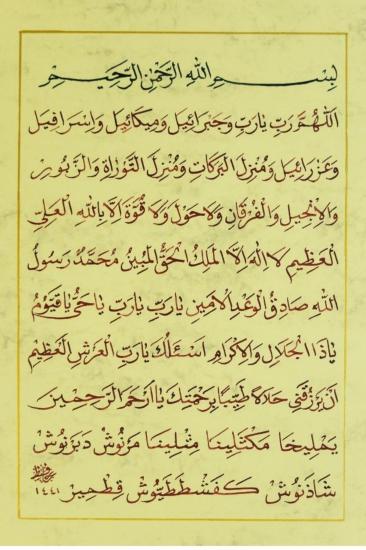 بِسْمِ اللهِ الرَّحْمٰنِ الرَّحِيْمِ
اَللّٰهُمَّ رَبِّ يَارَبِّ وَجَبْرَائِيلَ وَمِيكَائِيلَ وَاِسْرَافِيلَ
وَعَزْرَائِيلَ وَمُنْزِلَ الْبَرَكَاتِ وَمُنْزِلَ التَّوْرَاةِ وَالزَّبُورِ
وَالْاِنْجِيلِ وَالْفُرْقَانِ وَلَا حَوْلَ وَلَا قُوَّةَ اِلَّا بِاللهِ الْعَلِيِّ
الْعَظِيمِ لَا اِلٰهَ اِلَّا الْمَلِكُ الْحَقُّ الْمُبِينُ مُحَمَّدٌ رَسُولُ
اللهِ صَادِقُ الْوَعْدِ الْاَمِينِ يَارَبِّ يَارَبِّ يَاحَيُّ يَاقَيُّومُ
يَاذَا الْجَلَالِ وَالْاِكْرَامِ اَسْئَلُكَ يَارَبَّ الْعَرْشِ الْعَظِيمِ
اَنْ يَرْزُقَنِي حَلَالًا طَيِّبًا بِرَحْمَتِكَ يَا اَرْحَمَ الرَّاحِمِينَ
يَمْلِيخَا مَكْثَلِينَا مِثْلِينَا مَرْنُوشْ دَبَرْنُوشْ
شَاذَنُوشْ كَفَشْطَطَيُّوشْ قِطْمِيرْ
١٤٤١